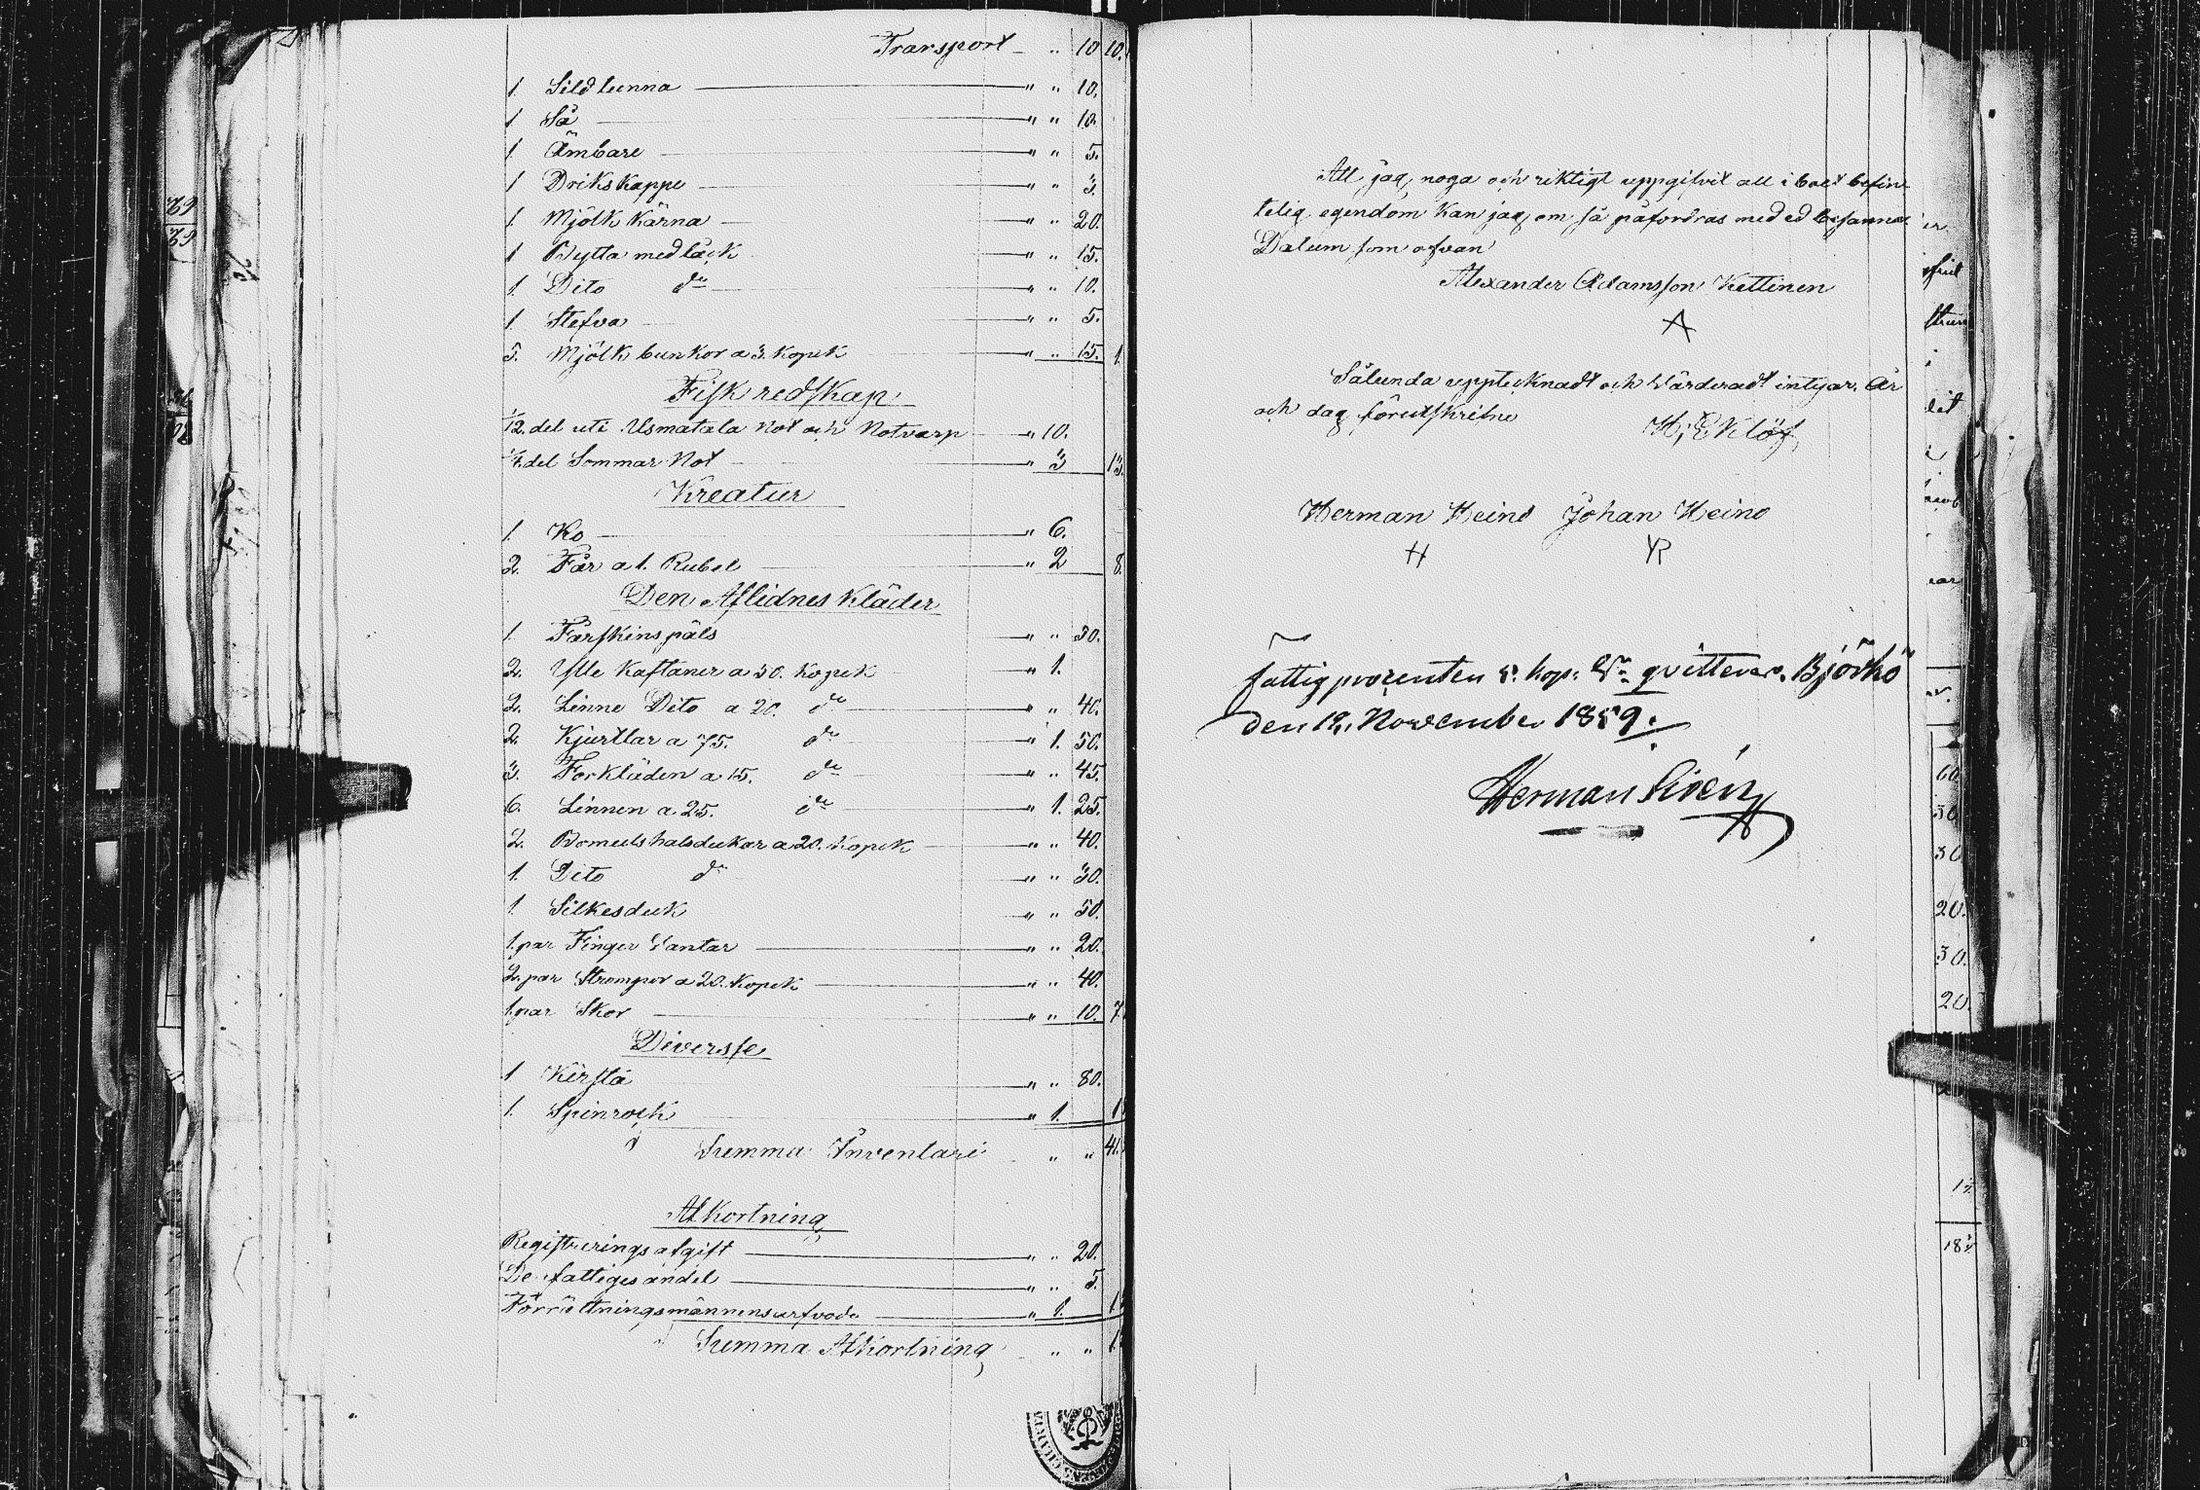 Transport " 10 10.
1. Sildtunna " " 10.
1 Så " " 10.
1. Ämbare " " 5.
1 Drikskappe " " 3.
1. Mjölk Kärna " " 20.
1 Bytta med låck " " 15.
1. Dito do " " 10.
1. Stefva " " 5.
5. Mjölk bunkor a 3. Kopek " " 15. 1.
Fiskredskap
1/12. del uti Usmatala Not och Notvarp " 10.
del Sommar Not " 3 13.
Kreatur
1. Ko " 6.
2. Får a 1. Rubel " 2 8.
Den Aflidnes Kläder
1. Fårskinspäls " " 30.
2. Ylle Kaftaner a 50. Kopek " 1.
2. Linne Dito a 20. do " " 40.
2. Kjurtlar a 75. do " 1. 50.
3. Forkläden a 15. do " " 45.
6. Linnen a 25. do " 1. 25.
2. Bomulshalsdukar a 20. Kopek " " 40.
1. Dito do " " 30.
1. Silkesduk " " 50.
1. par Finger Vantar " " 20.
2. par Strompor a 20. Kopek " " 40.
1. par Skor " " 10. 7.
Diversse
1 Kirsta " " 80.
1. Spinrock " 1. 1
Summa Inventari " " 41.
Afkortning
Registrerings afgift " " 20.
De fattiges andel " " 5.
Förrättningsmännens arfvode " 1. 1
Summa Afkortning " " 1.
Att jag noga och riktigt uppgifvit all i boet befin
telig egendom kan jag om så påfordras med ed besanna
Datum som ofvan
Alexander Adamsson Kettinen
A
Sålunda upptecknadt och Värderadt intygar. År
och dag förutskritne
H; Eklöf
Herman Heino Johan Heino
H
fattigprocenten 5. kop: Sr qvitteras. Björkö
den 12. November 1859.
Herman Sirén
60
30
30
20.
30.
20.